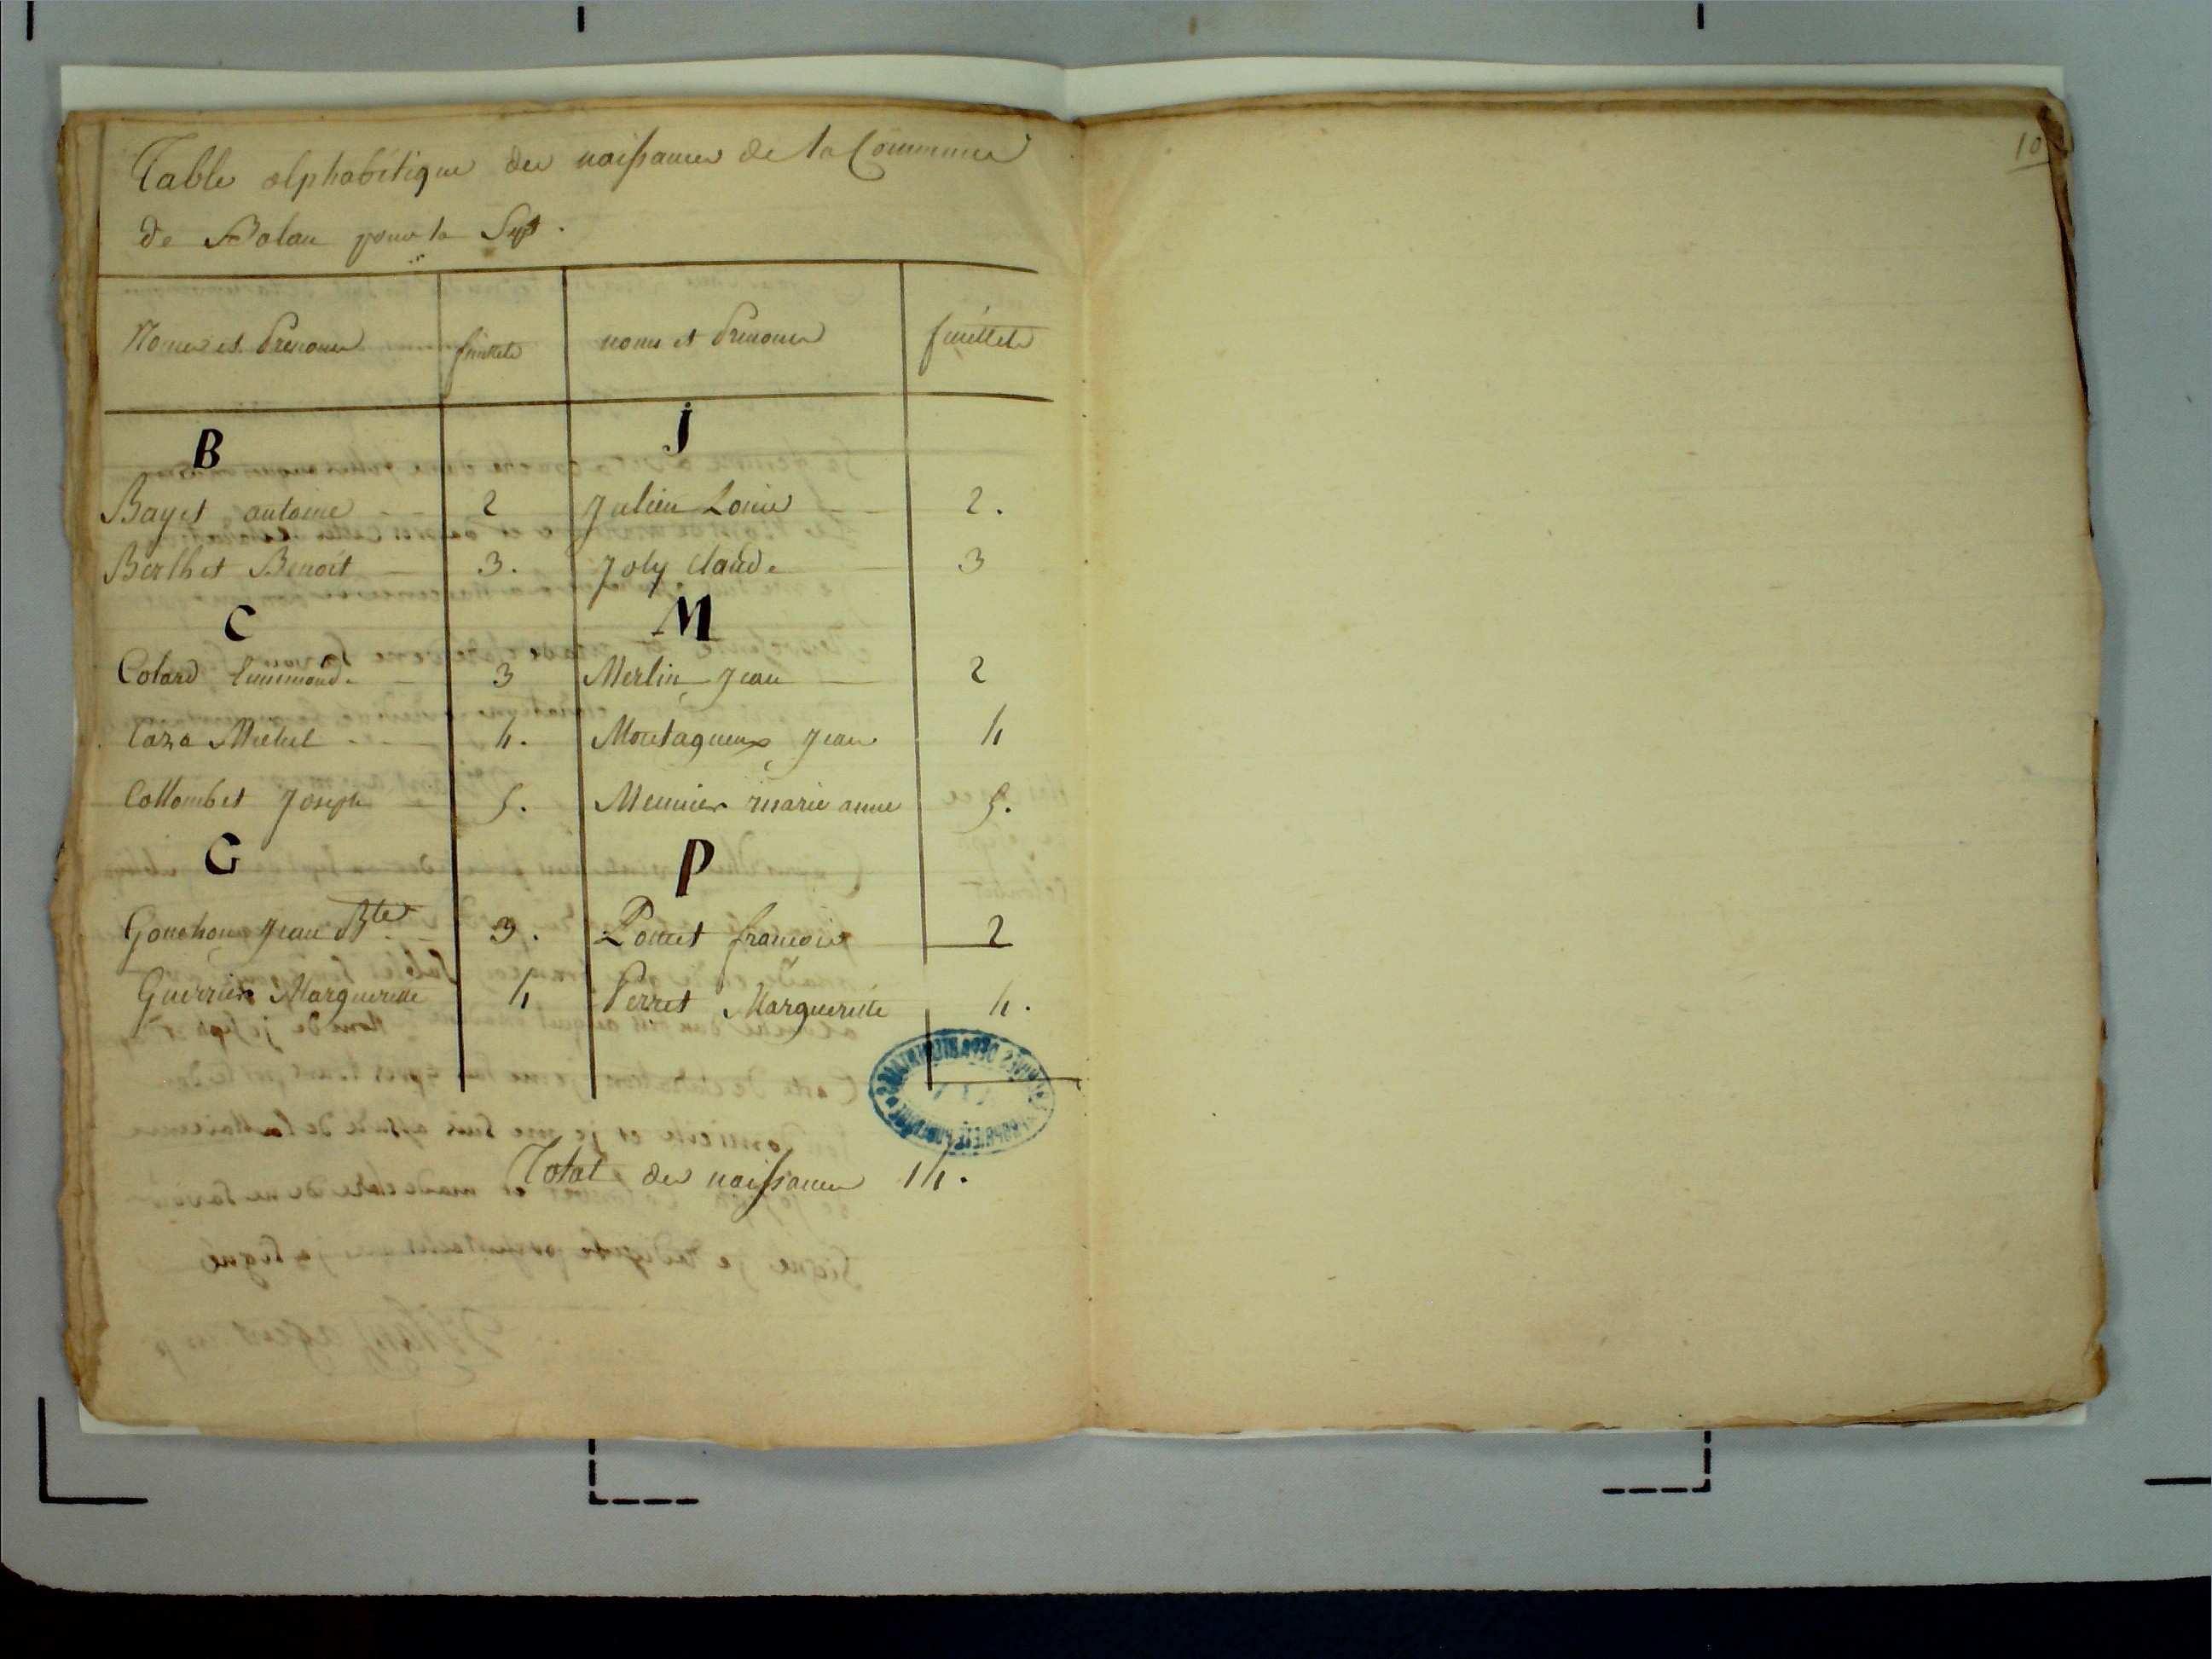 10
Table alphabétique des naissances de la Commune
de Balan pour la Sept.
Noms et Prenoms feuillets noms et Prenoms feuillets
B J
Bayet antoine 2 Julien Louis 2.
Berthet Benoit 3. Joly claude 3
C M
Colard 3 Merlin Jean 2
Caza Michel 4. Montagneux Jean 4
Collombet Joseph 5. Meunier marie anne 5.
G P
Gonehon Jean Bte 3. Poncet francois 2
Guerrier Margueritte 4 Perret Margueritte 4.
Total des naissances 14.